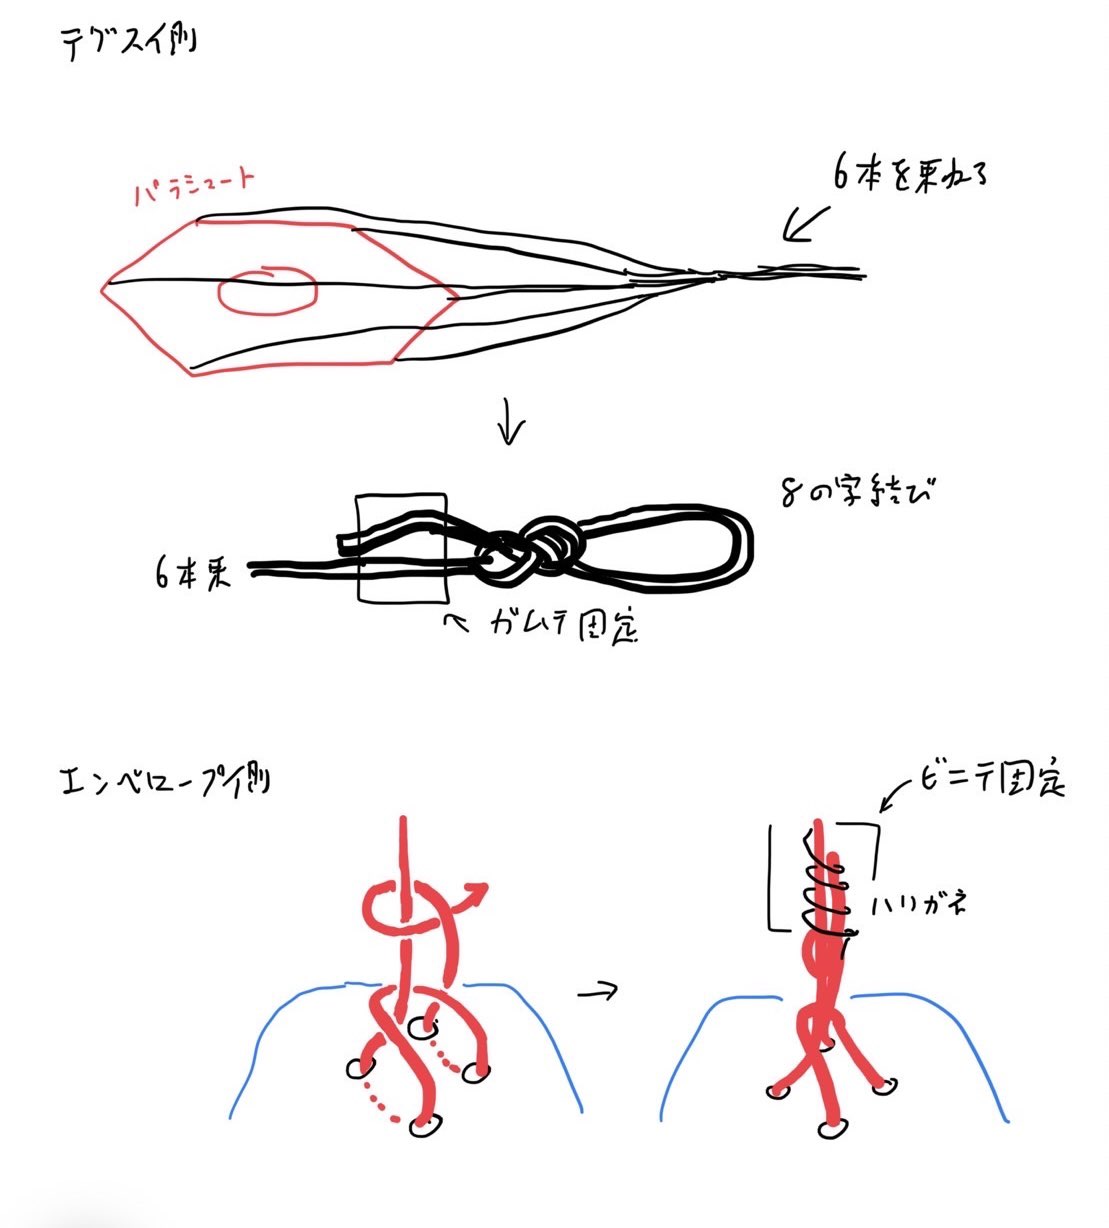 テグス側
パラシュート
6本を束ねる
8の字結び
6本束
ガムテ固定
エンベロープ側
ビニテ固定
ハリガネ